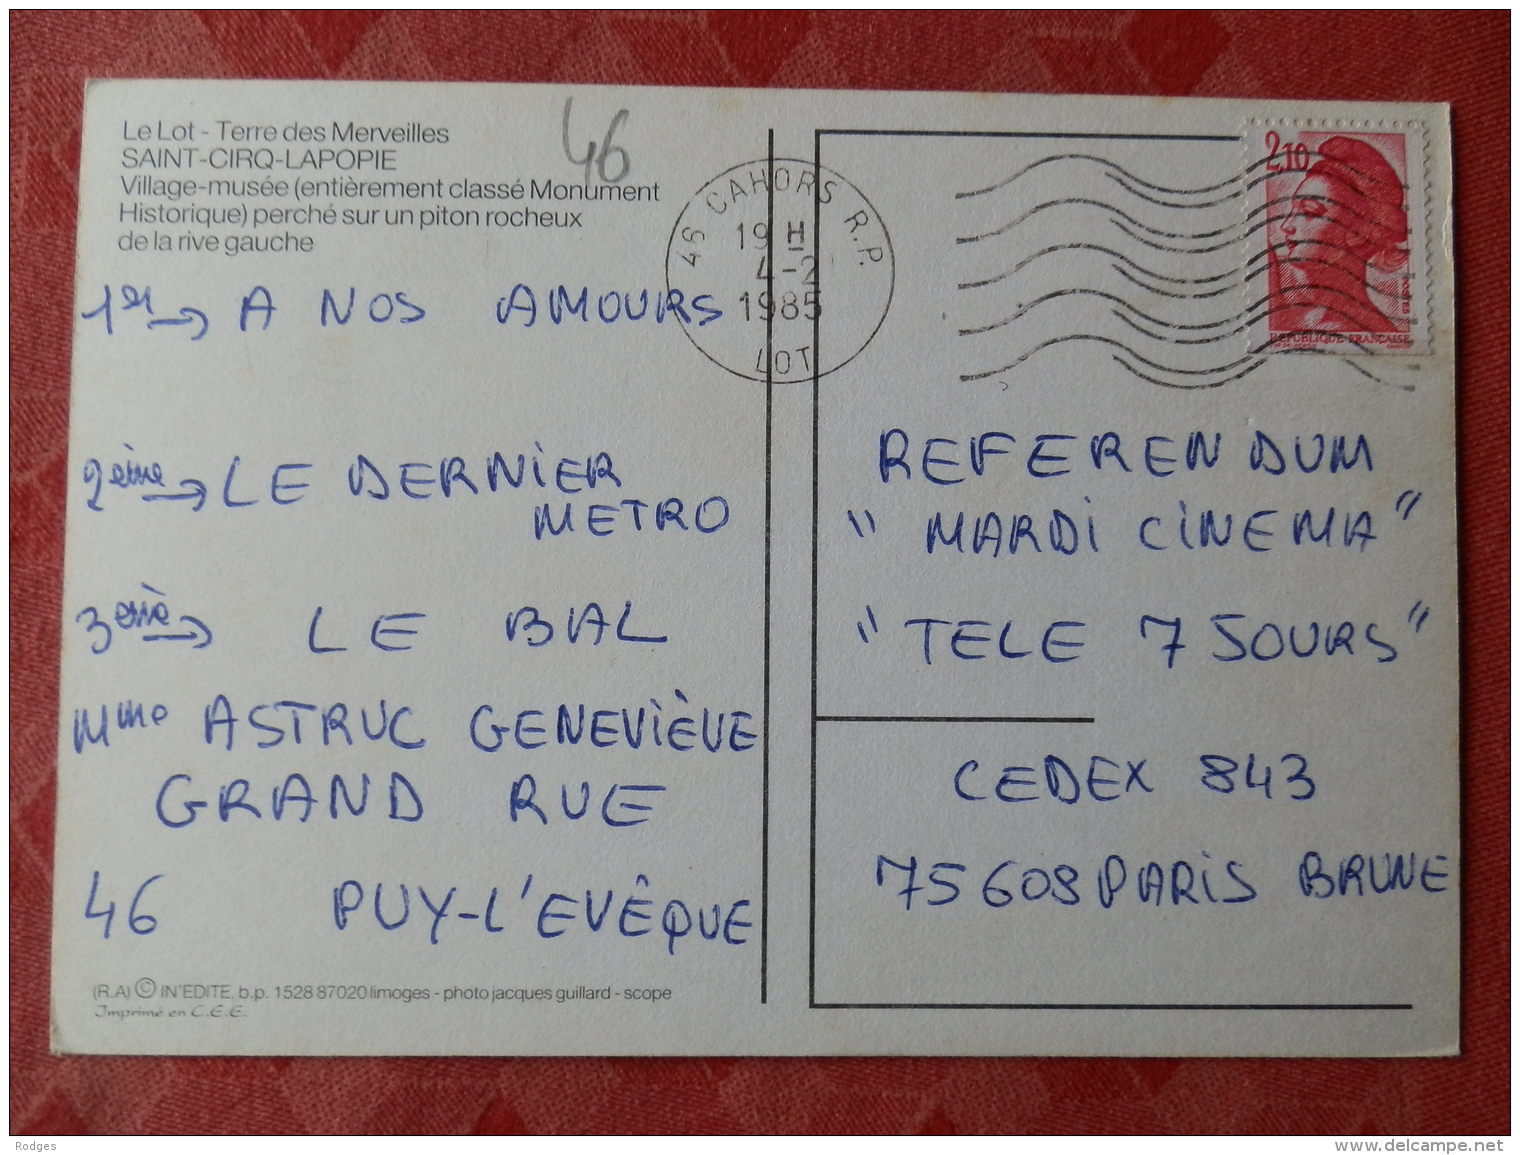 Le Lot - Terre des Merveilles
SAINT-CIRQ-LAPOPIE
Village-musée (entièrement classé Monument
Historique) perché sur un piton rocheux
de la rive gauche
46
1er → A NOS AMOURS
2ème → LE DERNiER
METRO
3ème → LE BAL
Mme ASTRUC GENEViÈVE
GRAND RUE
46 PUY-L'EVÊQUE
(R.A) © IN'EDITE, b.p. 1528 87020 limoges - photo jacques guillard - scope
Imprimé en C.E.E.
46 CAHORS R.P.
19 H
4-2
1985
LOT
2,10
POSTES
REPUBLIQUE FRANÇAISE
REFERENDUM
" MARDi CiNEMA "
" TELE 7 JOURS "
CEDEX 843
75608 PARiS BRUNE
Rodges
www.delcampe.net